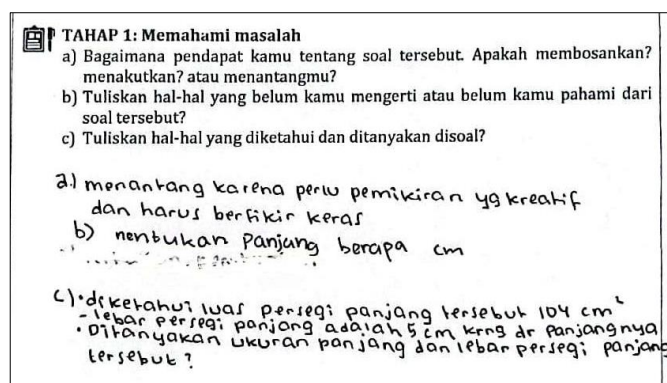 TAHAP 1: Memahami masalah
a) Bagaimana pendapat kamu tentang soal tersebut. Apakah membosankan?
menakutkan? atau menantangmu?
b) Tuliskan hal-hal yang belum kamu mengerti atau belum kamu pahami dari
soal tersebut?
c) Tuliskan hal-hal yang diketahui dan ditanyakan disoal?
a.) menantang karena perlu pemikiran yg kreatif
dan harus berfikir keras
b) nentukan panjang berapa cm
c) • diketahui luas persegi panjang tersebut 104 cm²
- lebar persegi panjang adalah 5 cm krng dr panjangnya
• Ditanyakan ukuran panjang dan lebar persegi panjang
tersebut?